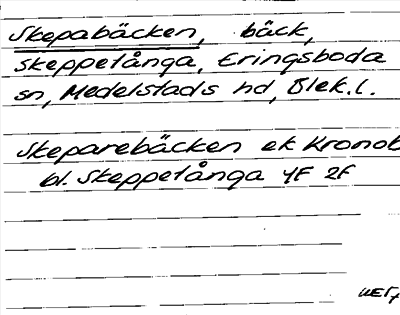 Skepabäcken, bäck,
Skeppetånga, Eringsboda
sn, Medelstads hd, Blek. l.
Skeparebäcken ek Kronob
bl. Skeppetånga YF 2F